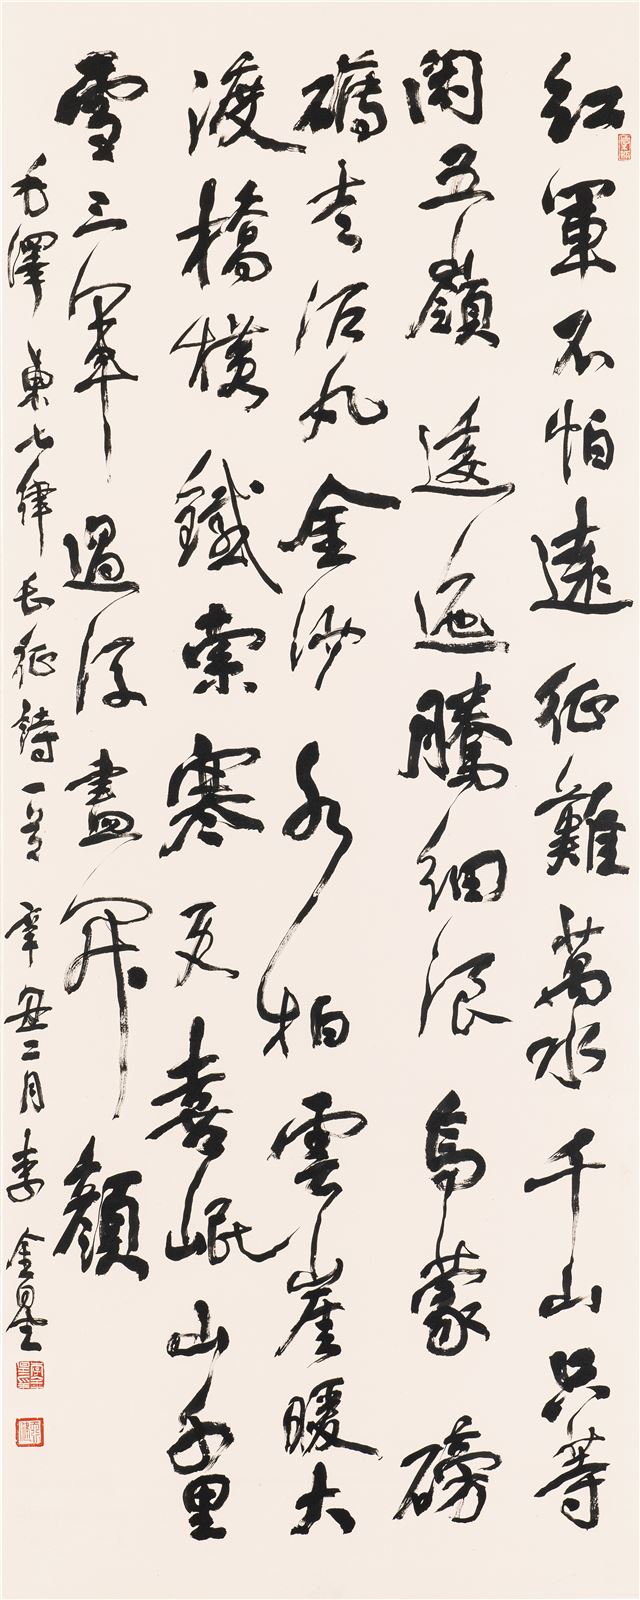 紅軍不怕遠征難萬水千山只等
閑五嶺逶迤騰細浪烏蒙磅
礴走泥丸金沙水拍雲崖暖大
渡橋橫鐵索寒更喜岷山千里
雪三軍過後盡開顏
毛澤東七律長征詩一首 辛丑二月 李金星